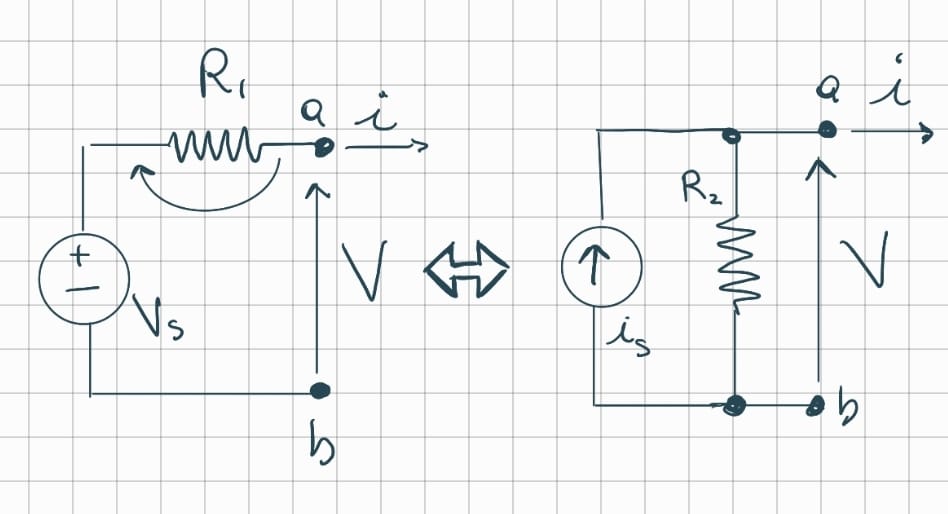 R₁
a i
+
−
Vₛ
V
b
a i
R₂
V
iₛ
b